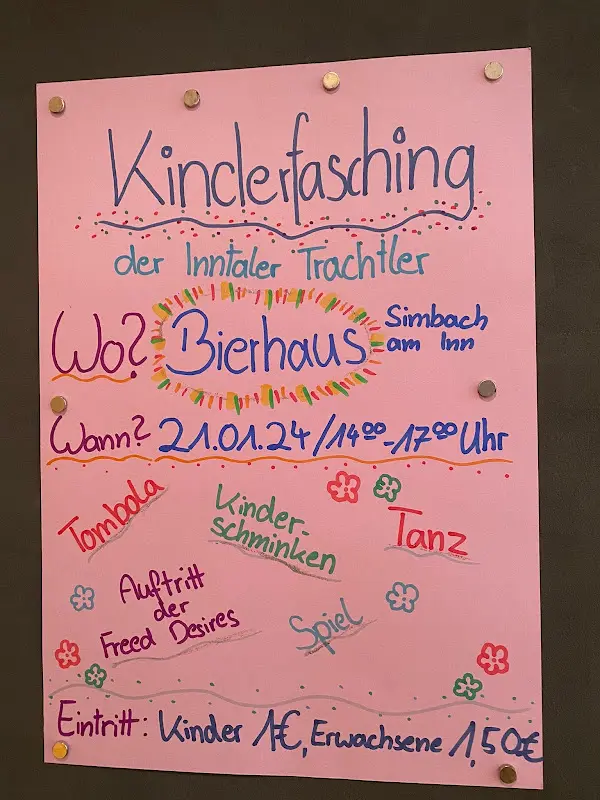 Kinderfasching
der Inntaler Trachtler
Wo? Bierhaus Simbach am Inn
Wann? 21.01.24/14⁰⁰-17⁰⁰ Uhr
Tombola
Kinder-
schminken
Tanz
Auftritt
der
Freed Desires
Spiel
Eintritt: Kinder 1€, Erwachsene 1,50€